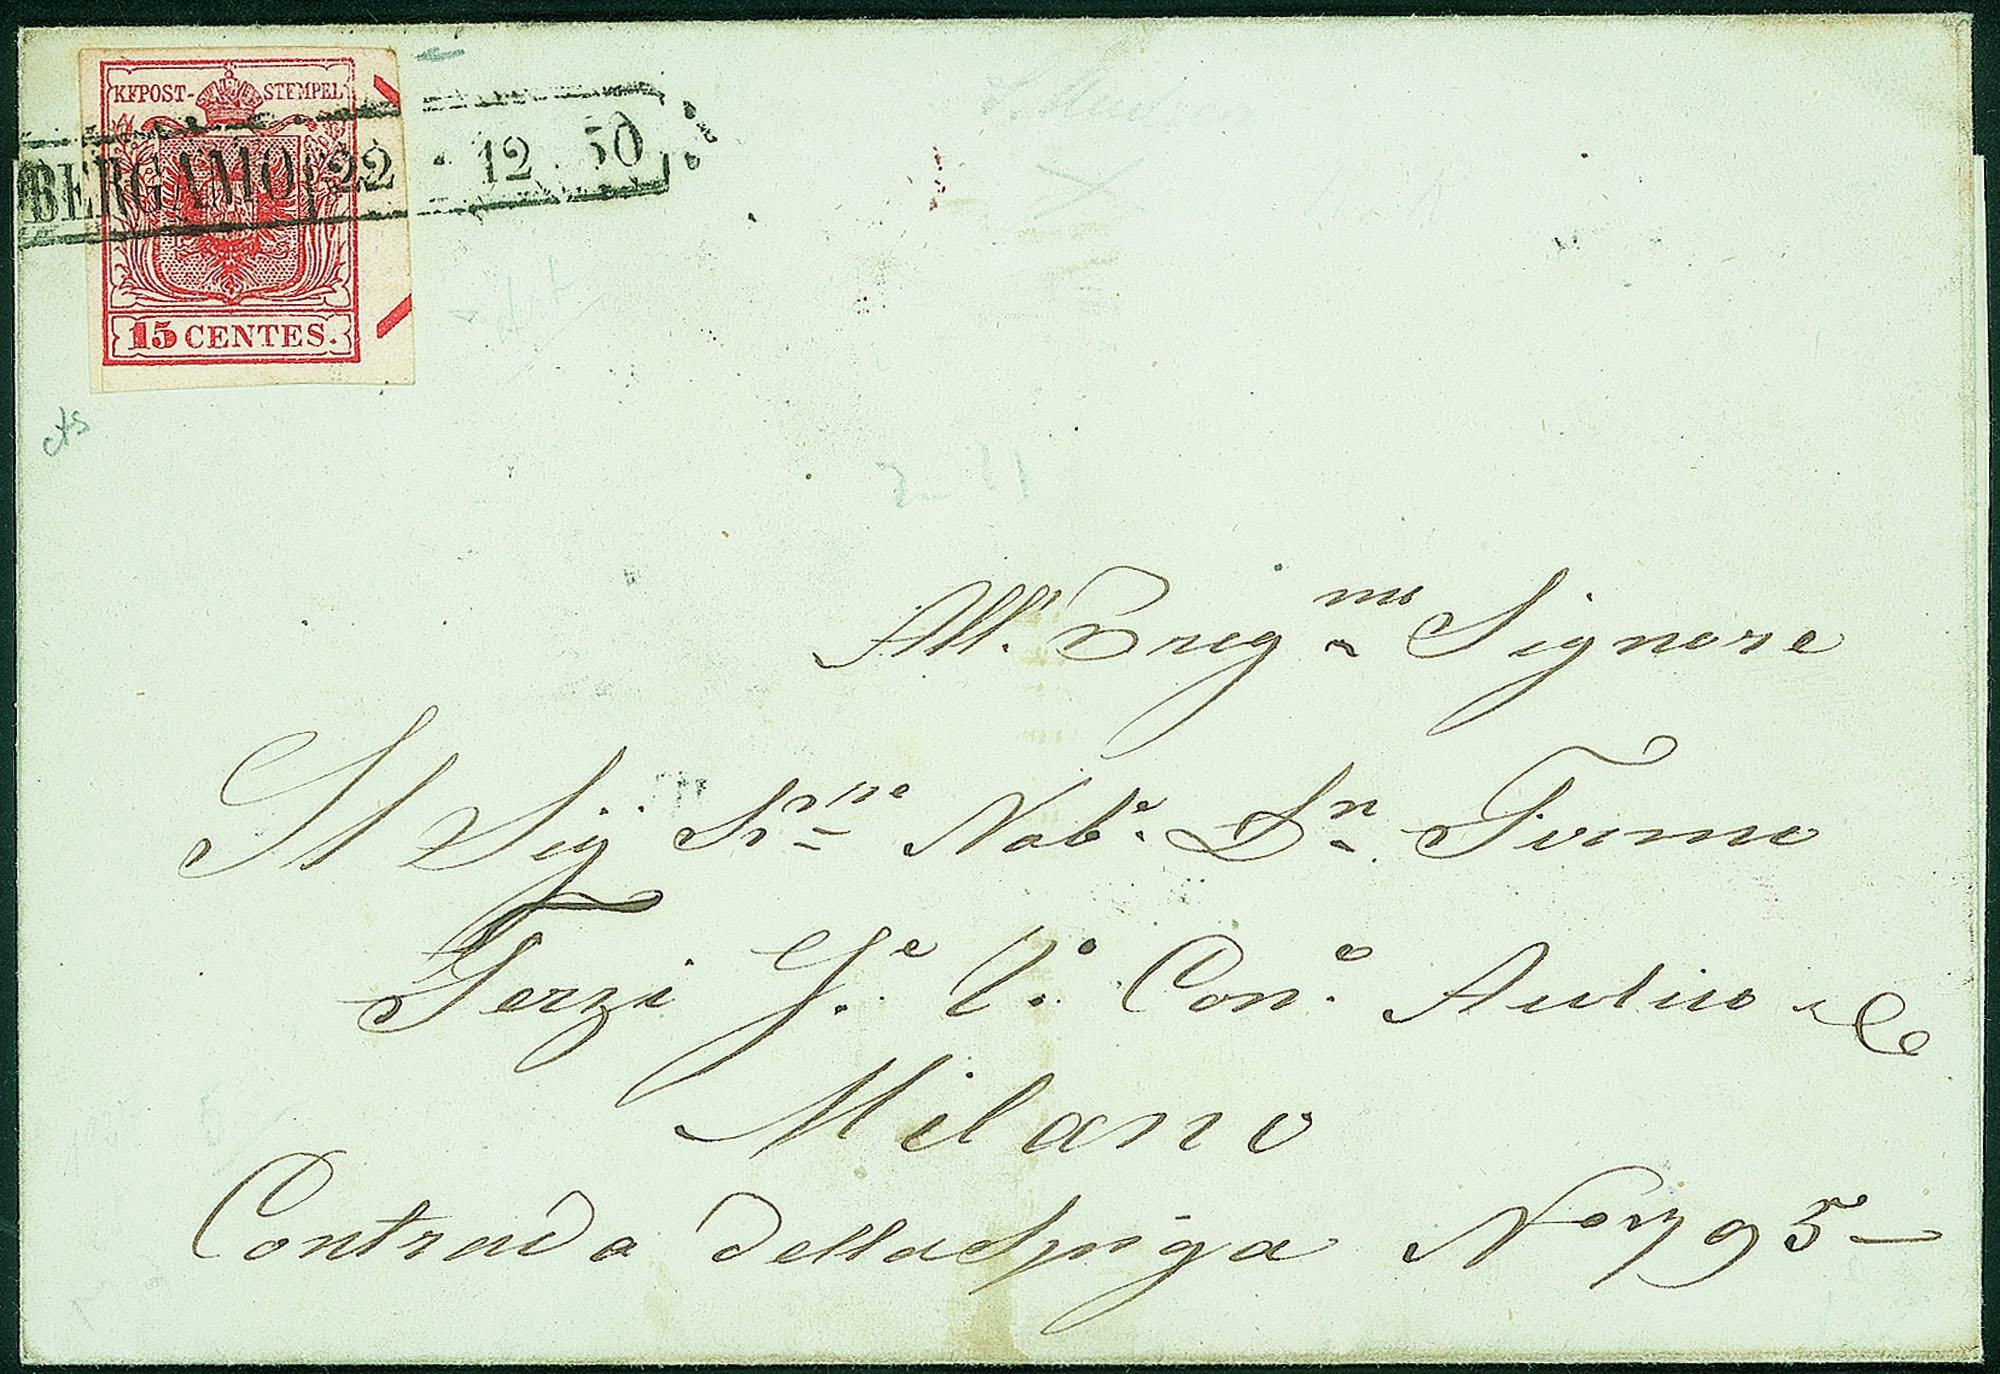 KKPOST- STEMPEL
BERGAMO 22 · 12 · 50
15 CENTES.
All' Preg.mo Signore
Il Sig. Nob.e Dn. Firmo
Terzi Con.e Aulico
Milano
Contrada della Spiga No. 795 —